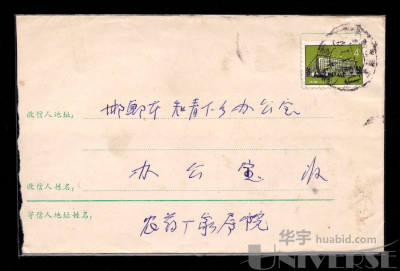 4
收信人地址：邯郸市 知青下乡办公室
收信人姓名：办公室 收
寄信人地址姓名：农药厂家属院
华宇 huabid.com
UNIVERSE